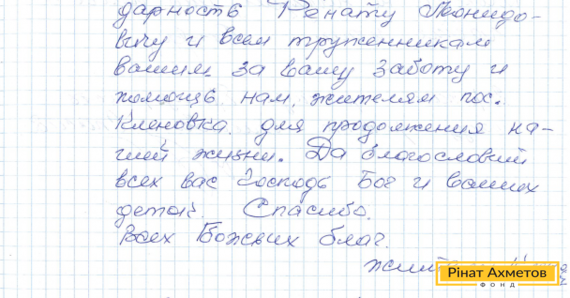 дарность Ренату Леонидо-
вичу и всем труженникам
вашим за вашу заботу и
помощь нам, жителям пос.
Кленовка для продолжения на-
шей жизни. Да благословит
всех вас Господь Бог и ваших
детей Спасибо.
Всех Божьих благ.
Рінат Ахметов
ФОНД